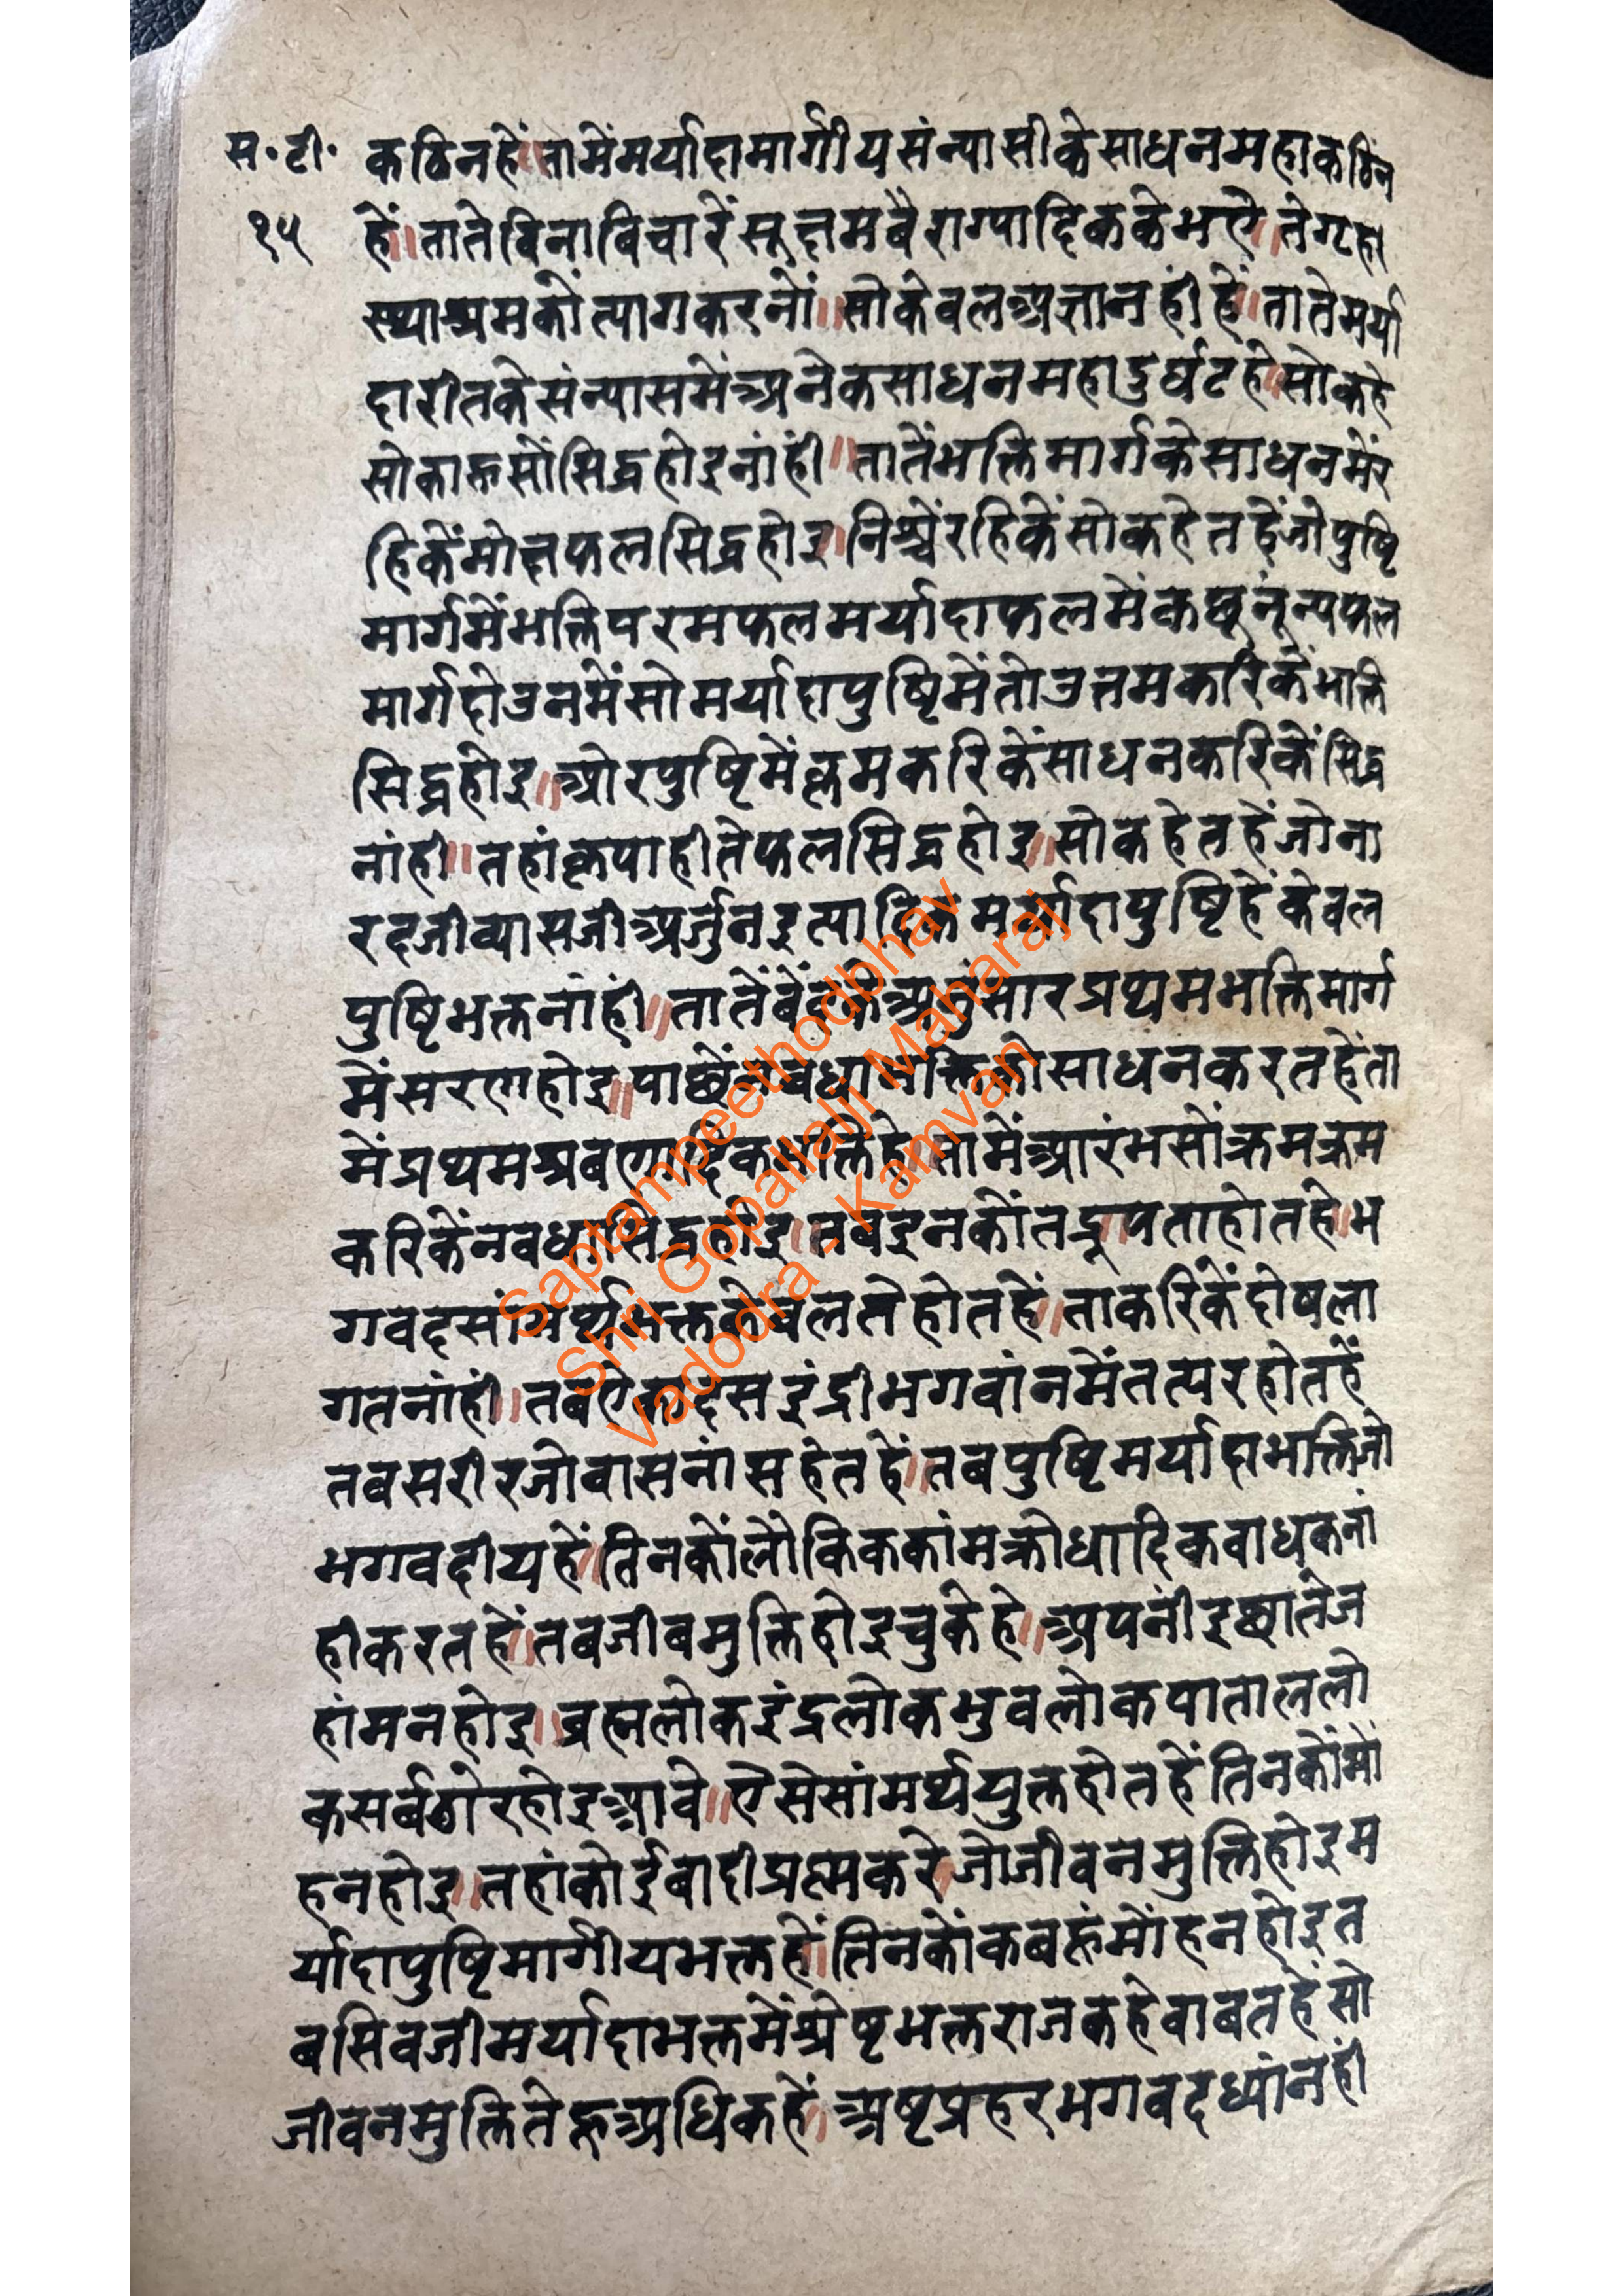 स॰टी॰ कठिनहें॥तामेंमर्यादामार्गीयसंन्यासीकेसाधनमहाकठिन
१५ हें॥तातेबिनाबिचारेंसूक्ष्मबैराग्यादिककेभऐ॥तेगृहा
स्थाश्रमकोंत्यागकरनों॥सोकेवलअज्ञानहींहें॥तातेमर्या
दारीतकेसंन्यासमेंअनेकसाधनमहादुर्घटहे॥सोकहे
सोकाहूसोंसिद्धहोइनांहीं॥तातेंभक्तिमार्गकेसाधनमेंर
हिकेंमोक्षफलसिद्धहोइ॥निश्चेंरहिकेंसोकहेतहेंजोपुष्टि
मार्गमेंभक्तिपरमफलमर्यादाफलमेंकछूनूंन्यफल
मार्गहोउनमेंसोमर्यादापुष्टिमेंतोउत्तमकरिकेंभक्ति
सिद्धहोइ॥ओरपुष्टिमेंक्रमकरिकेंसाधनकरिकेंसिद्ध
नांही॥तहांकृपाहीतेफलसिद्धहोइ॥सोकहेतहेंजोना
रदजीव्यासजीअर्जुनइत्यादिकमर्यादापुष्टिहेंकेवल
पुष्टिभक्तनांहीं॥तातेंबेंदकेअनुंसारप्रथमभक्तिमार्ग
मेंसरणहोइ॥पाछेंनवधाभक्तिकोसाधनकरतहेंता
मेंप्रथमश्रबणादिकभक्तिहे॥तामेंआरंभसोंक्रमक्रम
करिकेंनवधासिद्धहोइ॥तबइनकोंतद्रूपताहोतहे॥भ
गवदसांमर्थ्यभक्तकेबलतेहोतहें॥ताकरिकेंदोषला
गतनांहीं॥तबऐकादसइंद्रीभगवांनमेंतत्परहोतहें
तबसरीरजोवासनांसहेतहें॥तबपुष्टिमर्यादाभक्तिजो
भगवदीयहें॥तिनकोंलौकिककांमक्रोधादिकबाधकनां
हीकरतहें॥तबजीबमुक्तिहोइचुकेहे॥अपनींइछातेज
हांमनहोइ॥ब्रह्मलोकइंद्रलोकभुवलोकपाताललो
कसर्बठोरहोइआवे॥ऐसेसांमर्थ्ययुक्तहोतहेंतिनकोंमो
हनहोइ॥तहांकोईबादीप्रश्नकरेजोजीवनमुक्तिहोइम
र्यादापुष्टिमार्गीयभक्तहें॥तिनकोंकबहूंमोंहनहोइत
बसिवजीमर्यादाभक्तमेंश्रेष्टभक्तराजकहेवाबतहेंसो
जीवनमुक्तितेहूअधिकहें॥अष्टप्रहरभगवदध्यांनहीं
Saptampeethodbhav
Shri Gopallalji Maharaj
Vadodra - Kamvan